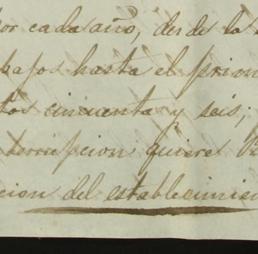 por cada año, desde la
bajos hasta el prim
tos cincuenta y seis;
quiere
cion del establecimien